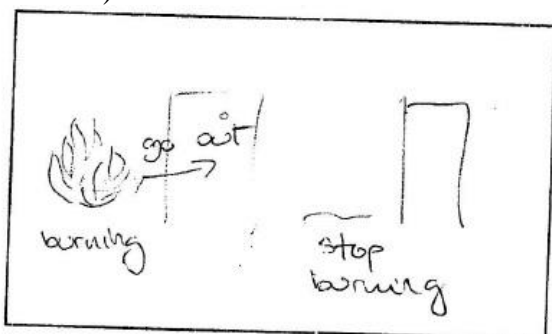 go out
burning
stop
burning